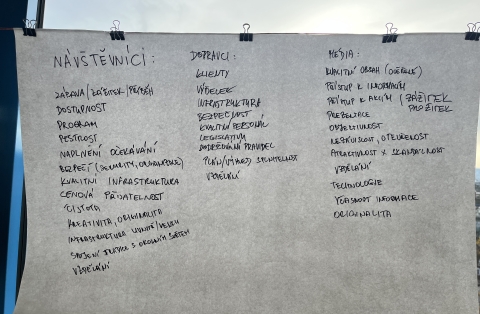 NÁVŠTĚVNÍCI:
ZÁBAVA/ZÁŽITEK/PŘÍBĚH
DOSTUPNOST
PROGRAM
PESTROST
NAPLNĚNÍ OČEKÁVÁNÍ
BEZPEČÍ (SECURITY,
KVALITNÍ INFRASTRUKTURA
CENOVÁ PŘIJATELNOST
ČISTOTA
KREATIVITA, ORIGINALITA
INFRASTRUKTURA UVNITŘ/VENKU
SPOJENÍ TRADICE S OKOLNÍM SVĚTEM
VZDĚLÁNÍ
DOPRAVCI:
KLIENTY
VÝDĚLEK
INFRASTRUKTURA
BEZPEČNOST
KVALITNÍ PERSONÁL
LEGISLATIVA
DODRŽOVÁNÍ PRAVIDEL
UDRŽITELNOST
VZDĚLÁNÍ
MÉDIA:
KVALITNÍ OBSAH (OVĚŘENÉ)
PŘÍSTUP K INFORMACÍM
PŘÍSTUP K AKCÍM (ZÁŽITEK
PROŽITEK
PREZENTACE
OBJEKTIVNOST
NEZÁVISLOST, OTEVŘENOST
ATRAKTIVNOST X SKANDÁLNOST
VZDĚLÁNÍ
TECHNOLOGIE
VČASNOST INFORMACE
ORIGINALITA